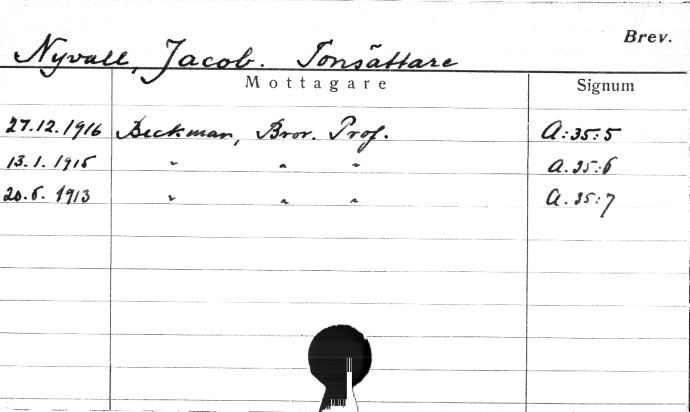 Brev.
Nyvall, Jacob. Tonsättare
Mottagare Signum
27.12.1916 Beckman, Bror. Prof. A:35:5
13.1.1915 " " " A.35:6
20.6.1913 " " " A.35:7